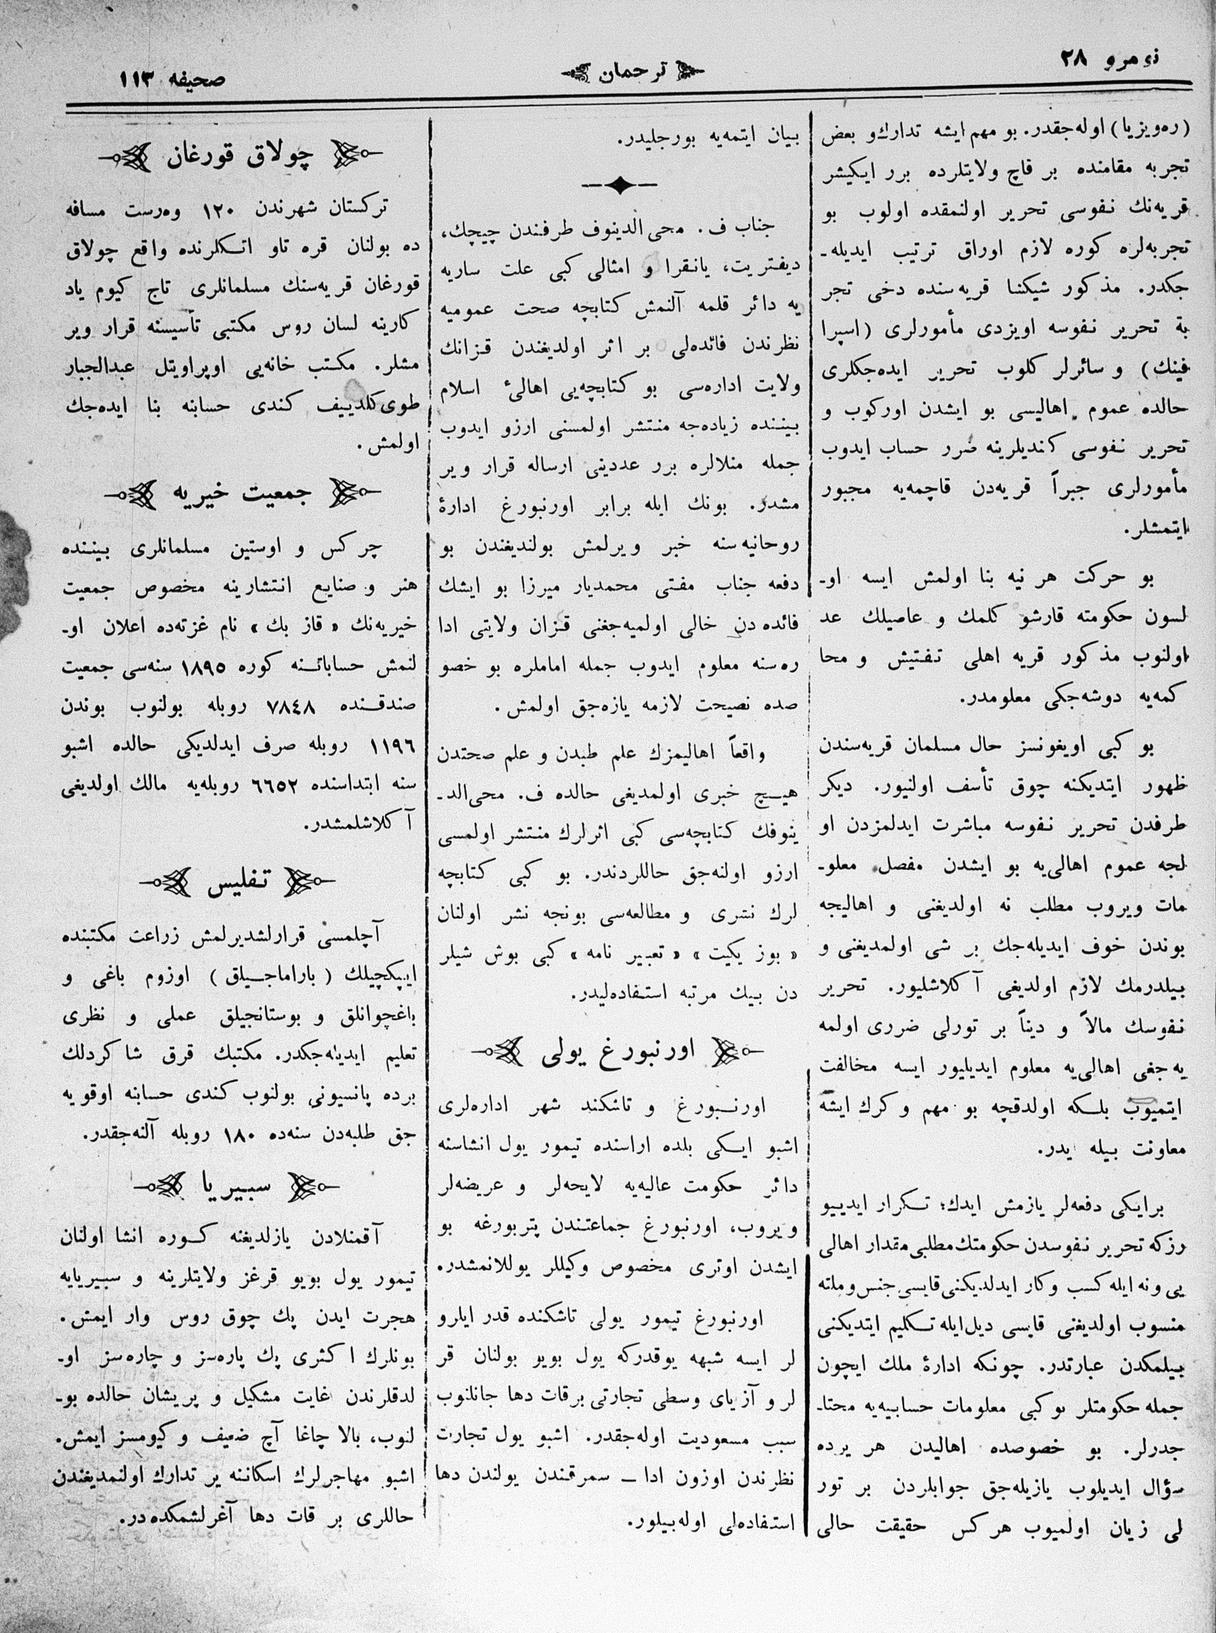 نومرو ٢٨
ترجمان
صحيفه ١١٣
(ره‌ويزيا) اوله‌جقدر. بو مهم ايشه تدارك و بعض
تجربه مقامنده بر قاچ ولايتلرده برر ايكيشر
قريه‌نك نفوسى تحرير اولنمقده اولوب بو
تجربه‌لره كوره لازم اوراق ترتيب ايديله‌ـ
جكدر. مذكور شيكنا قريه سنده دخى تجر
بۀ تحرير نفوسه اويزدى مأمورلرى (اسپرا
فينك) و سائرلر كلوب تحرير ايده‌جكلرى
حالده عموم اهاليسى بو ايشدن اوركوب و
تحرير نفوسى كنديلرينه ضرر حساب ايدوب
مأمورلرى جبراً قريه‌دن قاچمه‌يه مجبور
ايتمشلر.
بو حركت هر نيه بنا اولمش ايسه او‌ـ
لسون حكومته قارشو كلمك و عاصيلك عد
اولنوب مذكور قريه اهلى تفتيش و محا
كمه‌يه دوشه‌جكى معلومدر.
بو كبى اويغونسز حال مسلمان قريه‌سندن
ظهور ايتديكنه چوق تأسف اولنيور. ديكر
طرفدن تحرير نفوسه مباشرت ايدلمزدن او
لجه عموم اهالى‌يه بو ايشدن مفصل معلو‌ـ
مات ويروب مطلب نه اولديغنى و اهاليجه
بوندن خوف ايديله‌جك بر شى اولمديغنى و
بيلدرمك لازم اولديغى آكلاشليور. تحرير
نفوسك مالاً و ديناً بر تورلى ضررى اولمه
يه جغى اهالى‌يه معلوم ايديليور ايسه مخالفت
ايتميوب بلكه اولدقچه بو مهم و كرك ايشه
معاونت بيله يدر.
برايكى دفعه‌لر يازمش ايدك؛ تكرار ايدييو
رزكه تحرير نفوسدن حكومتك مطلبى مقدار اهالى
يى ونه ايله كسب وكار ايدلديكنى قايسى جنس وملته
منسوب اولديغنى قايسى ديل‌ايله تكليم ايتديكنى
بيلمكدن عبارتدر. چونكه ادارۀ ملك ايچون
جمله حكومتلر بوكبى معلومات حسابيه‌يه محتا‌ـ
جدرلر. بو خصوصده اهاليدن هر يرده
سؤال ايديلوب يازيله‌جق جوابلردن بر تور
لى زيان اولميوب هر كس حقيقت حالى
بيان ايتمه‌يه بورجليدر.
جناب ف. محى الدينوف طرفندن چيچك،
ديفتريت، يانقرا و امثالى كبى علت ساريه
يه دائر قلمه آلنمش كتابچه صحت عموميه
نظرندن فائده‌لى بر اثر اولديغندن قزانك
ولايت اداره‌سى بو كتابچه‌يى اهالئ اسلام
بيننده زياده‌جه منتشر اولمسنى ارزو ايدوب
جمله منلالره برر عددينى ارساله قرار وير
مشدر. بونك ايله برابر اورنبورغ ادارۀ
روحانيه‌سنه خبر ويرلمش بولنديغندن بو
دفعه جناب مفتى محمديار ميرزا بو ايشك
فائده‌دن خالى اولميه‌جغنى قزان ولايتى ادا
ره‌سنه معلوم ايدوب جمله اماملره بو خصو
صده نصيحت لازمه يازه‌جق اولمش.
واقعاً اهاليمزك علم طبدن و علم صحتدن
هيچ خبرى اولمديغى حالده ف. محى‌الد‌ـ
ينوفك كتابچه‌سى كبى اثرلرك منتشر اولمسى
ارزو اولنه‌جق حاللردندر. بو كبى كتابچه
لرك نشرى و مطالعه‌سى بونجه نشر اولنان
«بوز يكيت» «تعبير نامه» كبى بوش شيلر
دن بيك مرتبه استفاده‌ليدر.
اورنبورغ يولى
اورنبورغ و تاشكند شهر اداره‌لرى
اشبو ايكى بلده اراسنده تيمور يول انشاسنه
دائر حكومت عاليه‌يه لايحه‌لر و عريضه‌لر
ويروب، اورنبورغ جماعتندن پتربورغه بو
ايشدن اوترى مخصوص وكيللر يوللانمشدر.
اورنبورغ تيمور يولى تاشكنده قدر ايلرو
لر ايسه شبهه يوقدركه يول بوير بولنان قر
لر و آزياى وسطى تجارتى برقات دها جانلنوب
سبب مسعوديت اوله‌جقدر. اشبو يول تجارت
نظرندن اوزون ادا ــ سمرقمندن يولندن دها
استفاده‌لى اوله‌بيلور.
چولاق قورغان
تركستان شهرندن ١٢٠ وه‌رست مسافه
ده بولنان قره تاو اتكلرنده واقع چولاق
قورغان قريه‌سنك مسلمانلرى تاج كيوم ياد
كارينه لسان روس مكتبى تأسيسنه قرار وير
مشلر. مكتب خانه‌يى اوپراويتل عبدالجبار
طوى‌كلدييف كندى حسابنه بنا ايده‌جك
اولمش.
جمعيت خيريه
چركس و اوستين مسلمانلرى بيننده
هنر و صنايع انتشارينه مخصوص جمعيت
خيريه‌نك «قاز بك» نام غزته‌ده اعلان او‌ـ
لنمش حساباتنه كوره ١٨٩٥ سنه‌سى جمعيت
صندقنده ٧٨٤٨ روبله بولنوب بوندن
١١٩٦ روبله صرف ايدلديكى حالده اشبو
سنه ابتداسنده ٦٦٥٢ روبله‌يه مالك اولديغى
آكلاشلمشدر.
تفليس
آچلمسى قرارلشديرلمش زراعت مكتبنده
ايپكچيلك (باراماجيلق) اوزوم باغى و
باغچوانلق و بوستانجيلق عملى و نظرى
تعليم ايديله‌جكدر. مكتبك قرق شاكردلك
برده پانسيونى بولنوب كندى حسابنه اوقويه
جق طلبه‌دن سنه‌ده ١٨٠ روبله آلنه‌جقدر.
سبيريا
آقمنلادن يازلديغنه كوره انشا اولنان
تيمور يول بويو قرغز ولايتلرينه و سبيريايه
هجرت ايدن پك چوق روس وار ايمش.
بونلرك اكثرى پك پاره‌سز و چاره‌سز او‌ـ
لدقلرندن غايت مشكيل و پريشان حالده بو‌ـ
لنوب، بالا چاغا آچ ضعيف و كيومسز ايمش.
اشبو مهاجرلرك اسكاننه ير تدارك اولنمديغندن
حاللرى بر قات دها آغرلشمكده‌در.